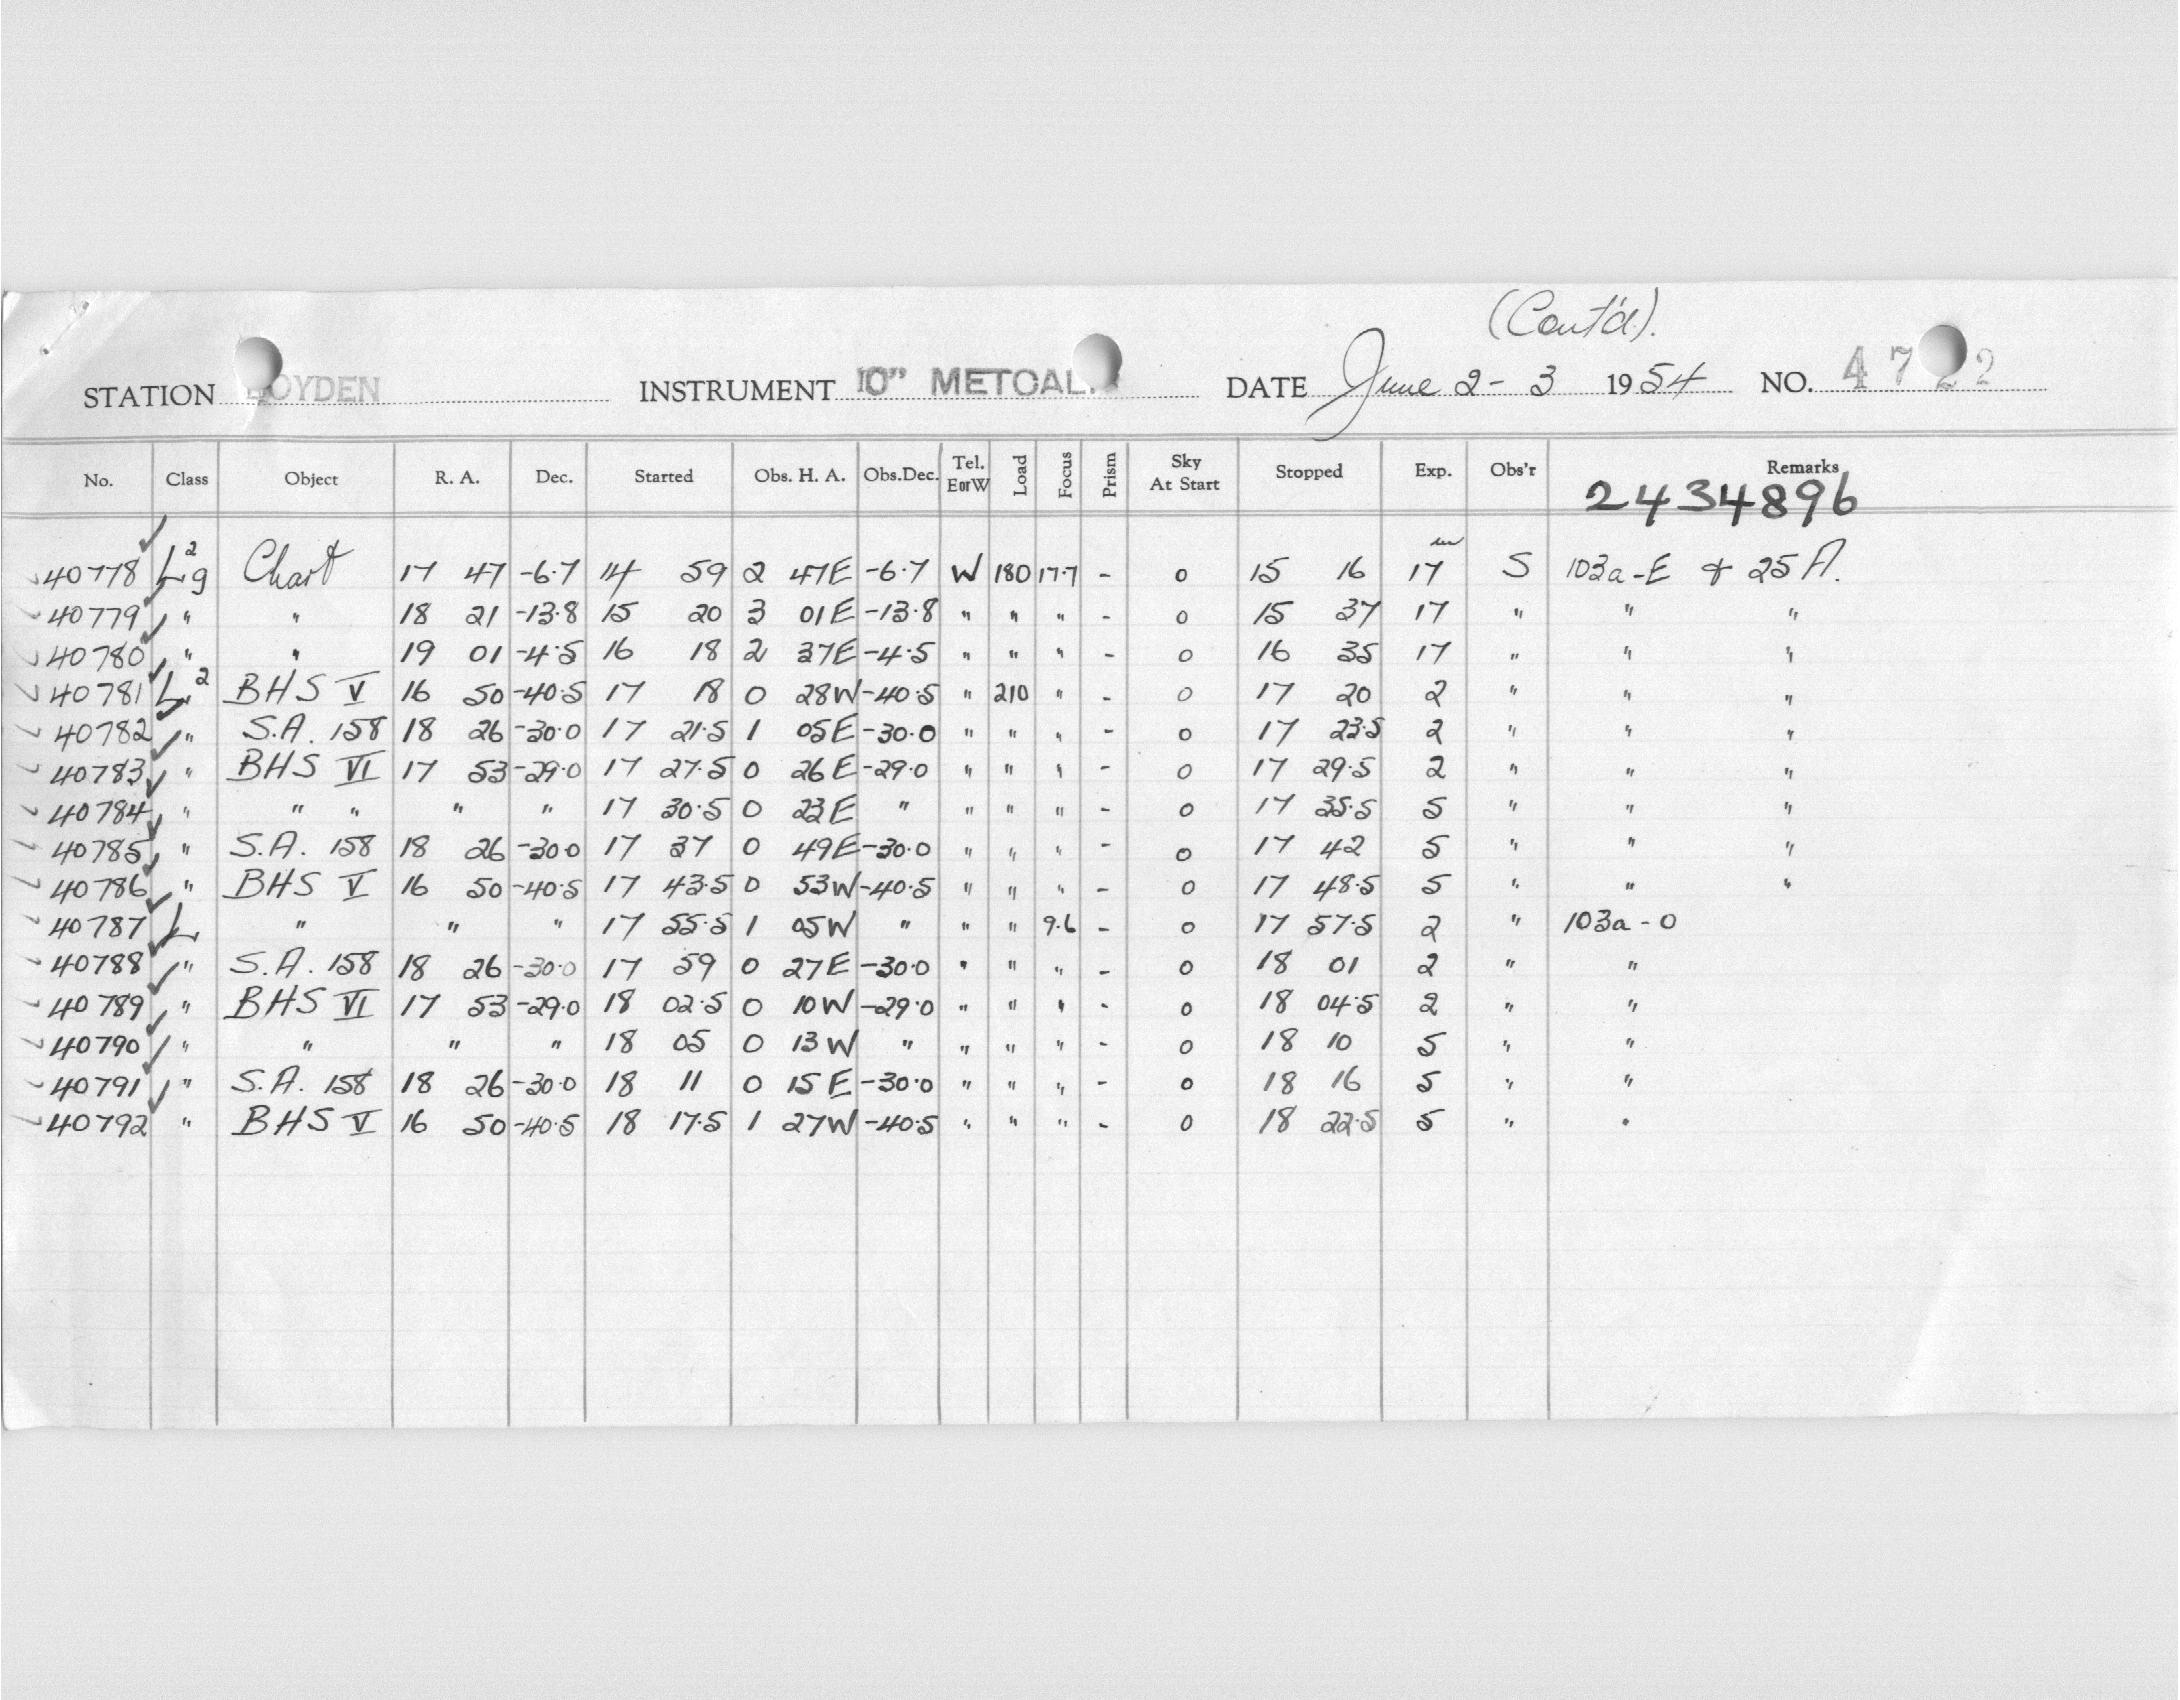 (Cont'd).
STATION BOYDEN INSTRUMENT 10" METCAL DATE June 2 - 3 1954 NO. 4722
No. Class Object R. A. Dec. Started Obs. H. A. Obs.Dec. Tel. E or W Load Focus Prism Sky At Start Stopped Exp. Obs'r Remarks
2434896
40778 L2g Chart 17 47 -6.7 14 59 2 47E -6.7 W 180 17.7 - 0 15 16 17m S 103a-E + 25 A.
40779 " " 18 21 -13.8 15 20 3 01E -13.8 " " " - 0 15 37 17 " " "
40780 " " 19 01 -4.5 16 18 2 37E -4.5 " " " - 0 16 35 17 " " "
40781 L2 BHS V 16 50 -40.5 17 18 0 28W -40.5 " 210 " - 0 17 20 2 " " "
40782 " S.A. 158 18 26 -30.0 17 21.5 1 05E -30.0 " " " - 0 17 23.5 2 " " "
40783 " BHS VI 17 53 -29.0 17 27.5 0 26E -29.0 " " " - 0 17 29.5 2 " " "
40784 " " " " " 17 30.5 0 23E " " " " - 0 17 35.5 5 " " "
40785 " S.A. 158 18 26 -30.0 17 37 0 49E -30.0 " " " - 0 17 42 5 " " "
40786 " BHS V 16 50 -40.5 17 43.5 0 53W -40.5 " " " - 0 17 48.5 5 " " "
40787 L " " " 17 55.5 1 05W " " " 9.6 - 0 17 57.5 2 " 103a-0
40788 " S.A. 158 18 26 -30.0 17 59 0 27E -30.0 " " " - 0 18 01 2 " "
40789 " BHS VI 17 53 -29.0 18 02.5 0 10W -29.0 " " " - 0 18 04.5 2 " "
40790 " " " " 18 05 0 13W " " " " - 0 18 10 5 " "
40791 " S.A. 158 18 26 -30.0 18 11 0 15E -30.0 " " " - 0 18 16 5 " "
40792 " BHS V 16 50 -40.5 18 17.5 1 27W -40.5 " " " - 0 18 22.5 5 " "